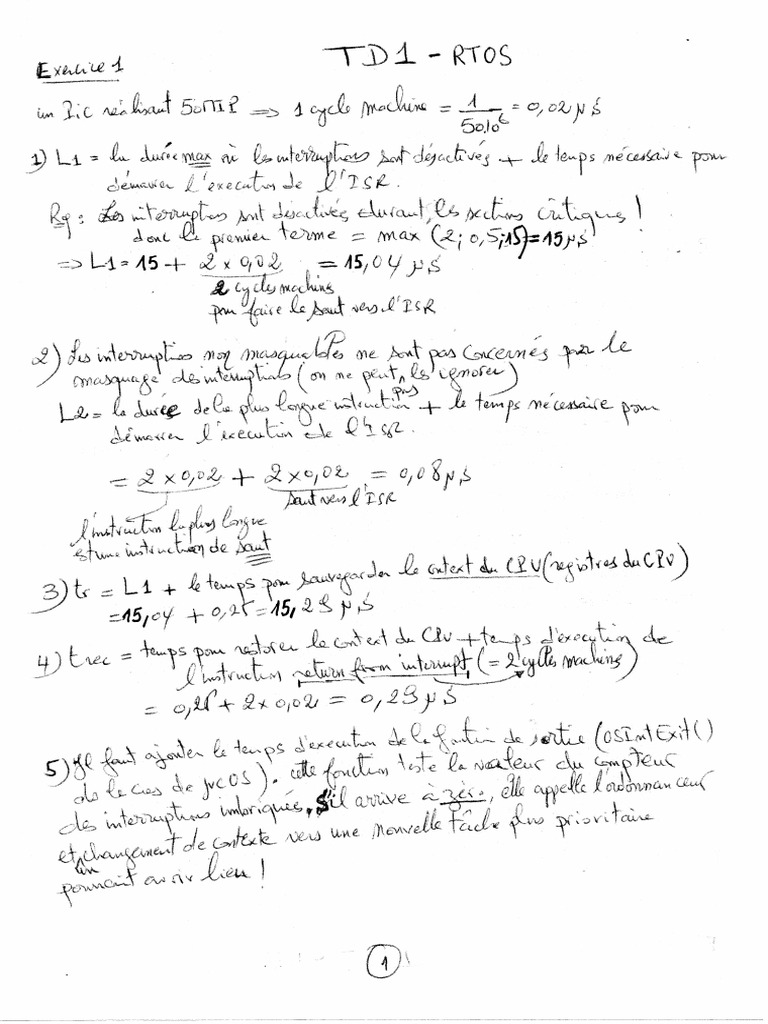 TD1 - RTOS
Exercice 1
un Pic réalisant 50MIP => 1 cycle machine = 1/50.10^6 = 0,02 µS
1) L1 = la durée max où les interruptions sont désactivés + le temps nécessaire pour
démarrer l'execution de l'ISR.
Rq : Les interruptions sont désactivées durant les sections critiques !
donc le premier terme = max (2; 0,5; 15) = 15 µS
=> L1 = 15 + 2 x 0,02 = 15,04 µS
2 cycles machine
pour faire le saut vers l'ISR
2) Les interruptions non masquables ne sont pas concernés par le
masquage des interruptions (on ne peut pas les ignorer)
L2 = la durée de la plus longue instruction + le temps nécessaire pour
démarrer l'execution de l'ISR.
= 2 x 0,02 + 2 x 0,02 = 0,08 µS
saut vers l'ISR
l'instruction la plus longue
est une instruction de saut
3) tr = L1 + le temps pour sauvegarder le context du CPU (registres du CPU)
= 15,04 + 0,25 = 15,29 µS
4) trec = temps pour restorer le context du CPU + temps d'execution de
l'instruction return from interrupt (= 2 cycles machine)
= 0,25 + 2 x 0,02 = 0,29 µS
5) Il faut ajouter le temps d'execution de la fonction de sortie (OSIntExit()
ds le cas de µCOS). cette fonction teste la valeur du compteur
des interruptions imbriquées, s'il arrive à zéro, elle appelle l'ordonnanceur
et un changement de contexte vers une nouvelle tâche plus prioritaire
pourrait avoir lieu !
1